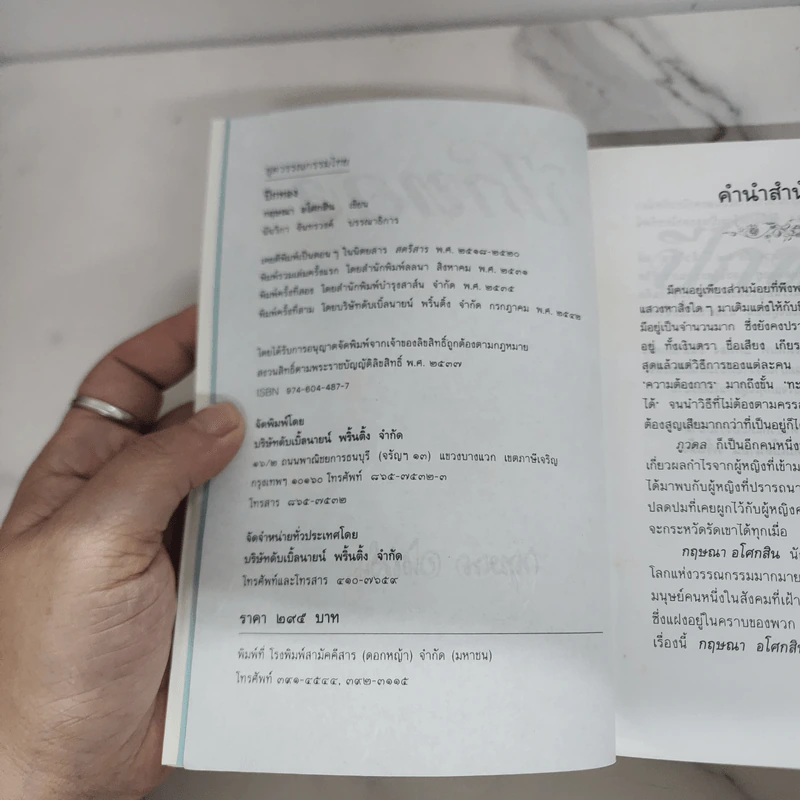 ชุดวรรณกรรมไทย
ปีกทอง
กฤษณา อโศกสิน เขียน
จันทรวงศ์ บรรณาธิการ
เคยตีพิมพ์เป็นตอนๆ ในนิตยสาร สตรีสาร พ.ศ. ๒๕๑๘-๒๕๒๐
พิมพ์รวมเล่มครั้งแรก โดยสำนักพิมพ์ลลนา สิงหาคม พ.ศ. ๒๕๓๑
พิมพ์ครั้งที่สอง โดยสำนักพิมพ์บำรุงสาส์น จำกัด พ.ศ. ๒๕๓๕
พิมพ์ครั้งที่สาม โดยบริษัทดับเบิ้ลนายน์ พริ้นติ้ง จำกัด กรกฎาคม พ.ศ. ๒๕๔๒
โดยได้รับการอนุญาตจัดพิมพ์จากเจ้าของลิขสิทธิ์ถูกต้องตามกฎหมาย
สงวนสิทธิ์ตามพระราชบัญญัติลิขสิทธิ์ พ.ศ. ๒๕๓๗
ISBN 974-604-487-7
จัดพิมพ์โดย
บริษัทดับเบิ้ลนายน์ พริ้นติ้ง จำกัด
๑๖/๒ ถนนพาณิชยการธนบุรี (จรัญฯ ๑๓) แขวงบางแวก เขตภาษีเจริญ
กรุงเทพฯ ๑๐๑๖๐ โทรศัพท์ ๘๖๕-๗๕๓๒-๓
โทรสาร ๘๖๕-๗๕๓๒
จัดจำหน่ายทั่วประเทศโดย
บริษัทดับเบิ้ลนายน์ พริ้นติ้ง จำกัด
โทรศัพท์และโทรสาร ๔๑๐-๗๖๕๙
ราคา ๒๙๕ บาท
พิมพ์ที่ โรงพิมพ์สามัคคีสาร (ดอกหญ้า) จำกัด (มหาชน)
โทรศัพท์ ๓๙๑-๔๕๔๔, ๓๙๒-๓๑๑๕
คำนำสำนั
มีคนอยู่เพียงส่วนน้อยที่พึงพอ
แสวงหาสิ่งใดๆ มาเติมแต่งให้กับ
มีอยู่เป็นจำนวนมาก ซึ่งยังคงปรา
อยู่ ทั้งเงินตรา ชื่อเสียง เกียร
สุดแล้วแต่วิธีการของแต่ละคน
"ความต้องการ" มากถึงขั้น "ทะ
ได้" จนนำวิธีที่ไม่ต้องตามครรล
ต้องสูญเสียมากกว่าที่เป็นอยู่ก็ไ
ภูวดล ก็เป็นอีกคนหนึ่ง
เกี่ยวผลกำไรจากผู้หญิงที่เข้าม
ได้มาพบกับผู้หญิงที่ปรารถนา
ปลดปมที่เคยผูกไว้กับผู้หญิงค
จะกระหวัดรัดเขาได้ทุกเมื่อ
กฤษณา อโศกสิน นั
โลกแห่งวรรณกรรมมากมาย
มนุษย์คนหนึ่งในสังคมที่เฝ้า
ซึ่งแฝงอยู่ในคราบของพวก
เรื่องนี้ กฤษณา อโศกสิน